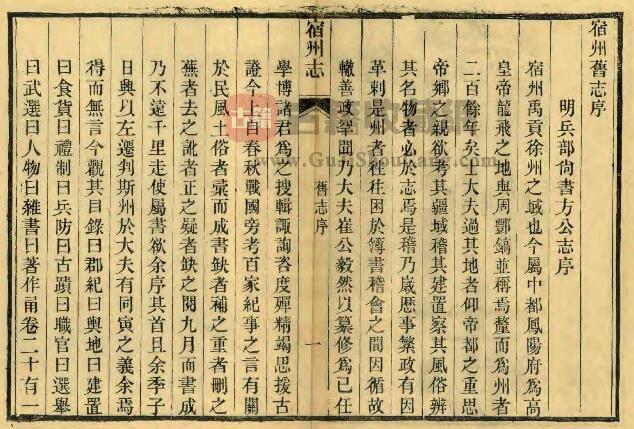 宿州舊志序
明兵部尚書方公志序
宿州禹貢徐州之域也今屬中都鳳陽府爲高
皇帝龍飛之地與周酆鎬並稱焉釐而爲州者
二百餘年矣士大夫過其地者仰帝都之重思
帝鄉之親欲考其疆域稽其建置察其風俗辨
其名物者必於志焉是稽乃歲歷事繁政有因
革刺是州者往往困於簿書稽會之間因循故
轍善政罕聞乃大夫崔公毅然以纂修爲已任
宿州志
舊志序
一
學博諸君爲之搜輯諏詢咨度殫精竭思援古
證今上自春秋戰國旁考百家紀事之言有關
於民風土俗者彙而成書缺者補之重者刪之
蕪者去之訛者正之疑者缺之閱九月而書成
乃不遠千里走使屬書欲余序其首且余季子
日與以左遷判斯州於大夫有同寅之義余焉
得而無言今觀其目錄曰郡紀曰輿地曰建置
曰食貨曰禮制曰兵防曰古蹟曰職官曰選舉
曰武選曰人物曰雜書曰著作甫卷二十有一
古籍
www.GuJiShouCang.com